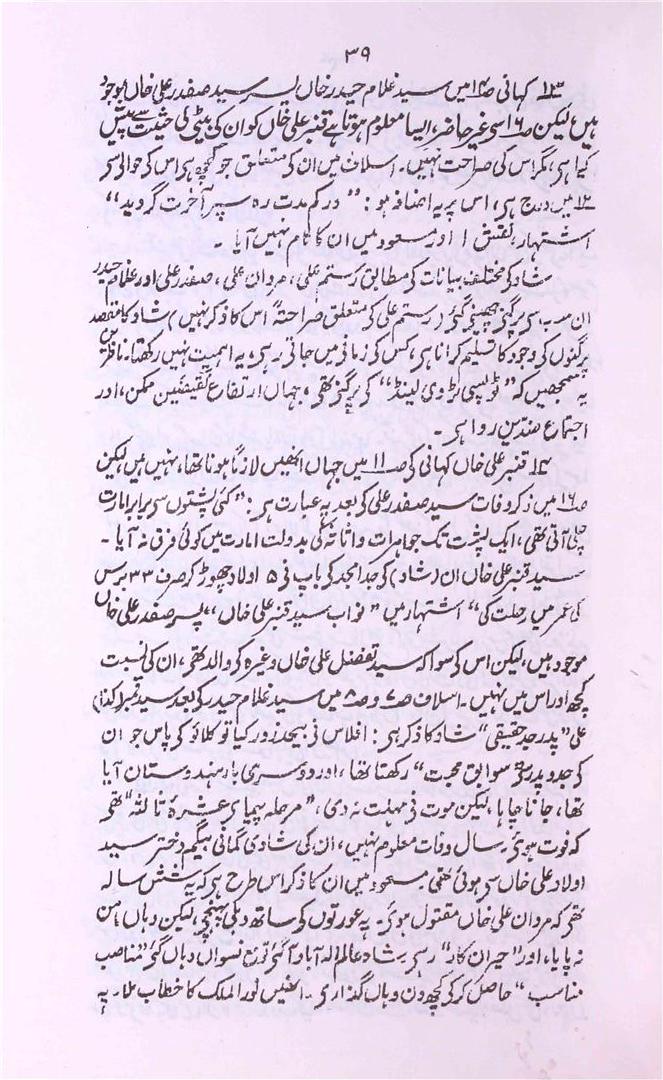 ۳۹
۱۳ کہانی ص۱۴ میں سید غلام حیدر خاں پسر سید صفدر علی خاں موجود
ہیں، لیکن ص۱۶ سی غیر حاضر، ایسا معلوم ہوتا ہے قنبر علی خاں کو ان کی بیٹی کی حیثیت سے پیش
کیا ہی، مگر اس کی صراحت نہیں۔ اسلاف میں ان کے متعلق جو کچھ ہی اس کی حوالی سی
۱۲ میں درج ہی، اس پر یہ اضافہ ہو: ”در کم مدت رہ سپر آخرت گردید“
اشتہار، نقش ۱ اور مسعود میں ان کا نام نہیں آیا۔
شاد کی مختلف بیانات کی مطابق رستم علی، مردان علی، صفدر علی اور غلام حیدر
ان سب سی پرگنی چھینی گئی (رستم علی کی متعلق صراحتہً اس کا ذکر نہیں) شاد کا مقصد
پرگنوں کی وجود کا تسلیم کرانا ہی، کس کی زمانی میں جاتی رہی، یہ اہمیت نہیں رکھتا۔ ناظرین
یہ سمجھیں کہ ”ٹوپسی ٹروی لینڈ“ کی پرگنی تھی، جہاں ارتفاع نقیضین ممکن، اور
اجتماع ضدین روا ہی۔
۱۴ قنبر علی خاں کہانی کی ص۱۱ میں جہاں انھیں لازماً ہونا تھا، نہیں ہیں لیکن
ص۱۶ میں ذکر وفات سید صفدر علی کی بعد یہ عبارت ہی: ”کئی پشتوں سی برابر امارت
چلی آتی تھی، ایک پشت تک جواہرات و اثاثہ کی بدولت امارت میں کوئی فرق نہ آیا۔
سید قنبر علی خاں ان (شاد) کی جد امجد کی باپ نی ۵ اولاد چھوڑ کر صرف ۳۳ برس
کی عمر میں رحلت کی“ اشتہار میں ”نواب سید قنبر علی خاں“، پسر صفدر علی خاں
موجود ہیں، لیکن اس کی سوا کہ سید تفضل علی خاں وغیرہ کی والد تھی، ان کی نسبت
کچھ اور اس میں نہیں۔ اسلاف ص۷ و ص۸ میں سید غلام حیدر کی بعد سید قمبر (کذا)
علی ”پدر جد حقیقی“ شاد کا ذکر ہی: افلاس نی بیحد زور کیا تو کلائو کی پاس جو ان
کی جد و پدر سی ”سوابق محبت“ رکھتا تھا، اور دوسری بار ہندوستان آیا
تھا، جانا چاہا، لیکن موت نی مہلت نہ دی، ”مرحلہ پیمای عشرۂ ثالثہ“ تھی
کہ فوت ہوئی۔ سال وفات معلوم نہیں، ان کی شادی گمانی بیگم دختر سید
اولاد علی خاں سی ہوئی تھی۔ مسعود میں ان کا ذکر اس طرح ہی کہ یہ شش سالہ
تھی کہ مردان علی خاں مقتول ہوئی۔ یہ عورتوں کی ساتھ دلی پہنچی، لیکن وہاں امن
نہ پایا، اور ”حیران کار“ رہی۔ شاہ عالم الہ آباد آ گئی تو مع نسواں وہاں گئی ”مناصب
مناسب“ حاصل کر کی کچھ دن وہاں گذاری۔ انھیں نور الملک کا خطاب ملا۔ یہ